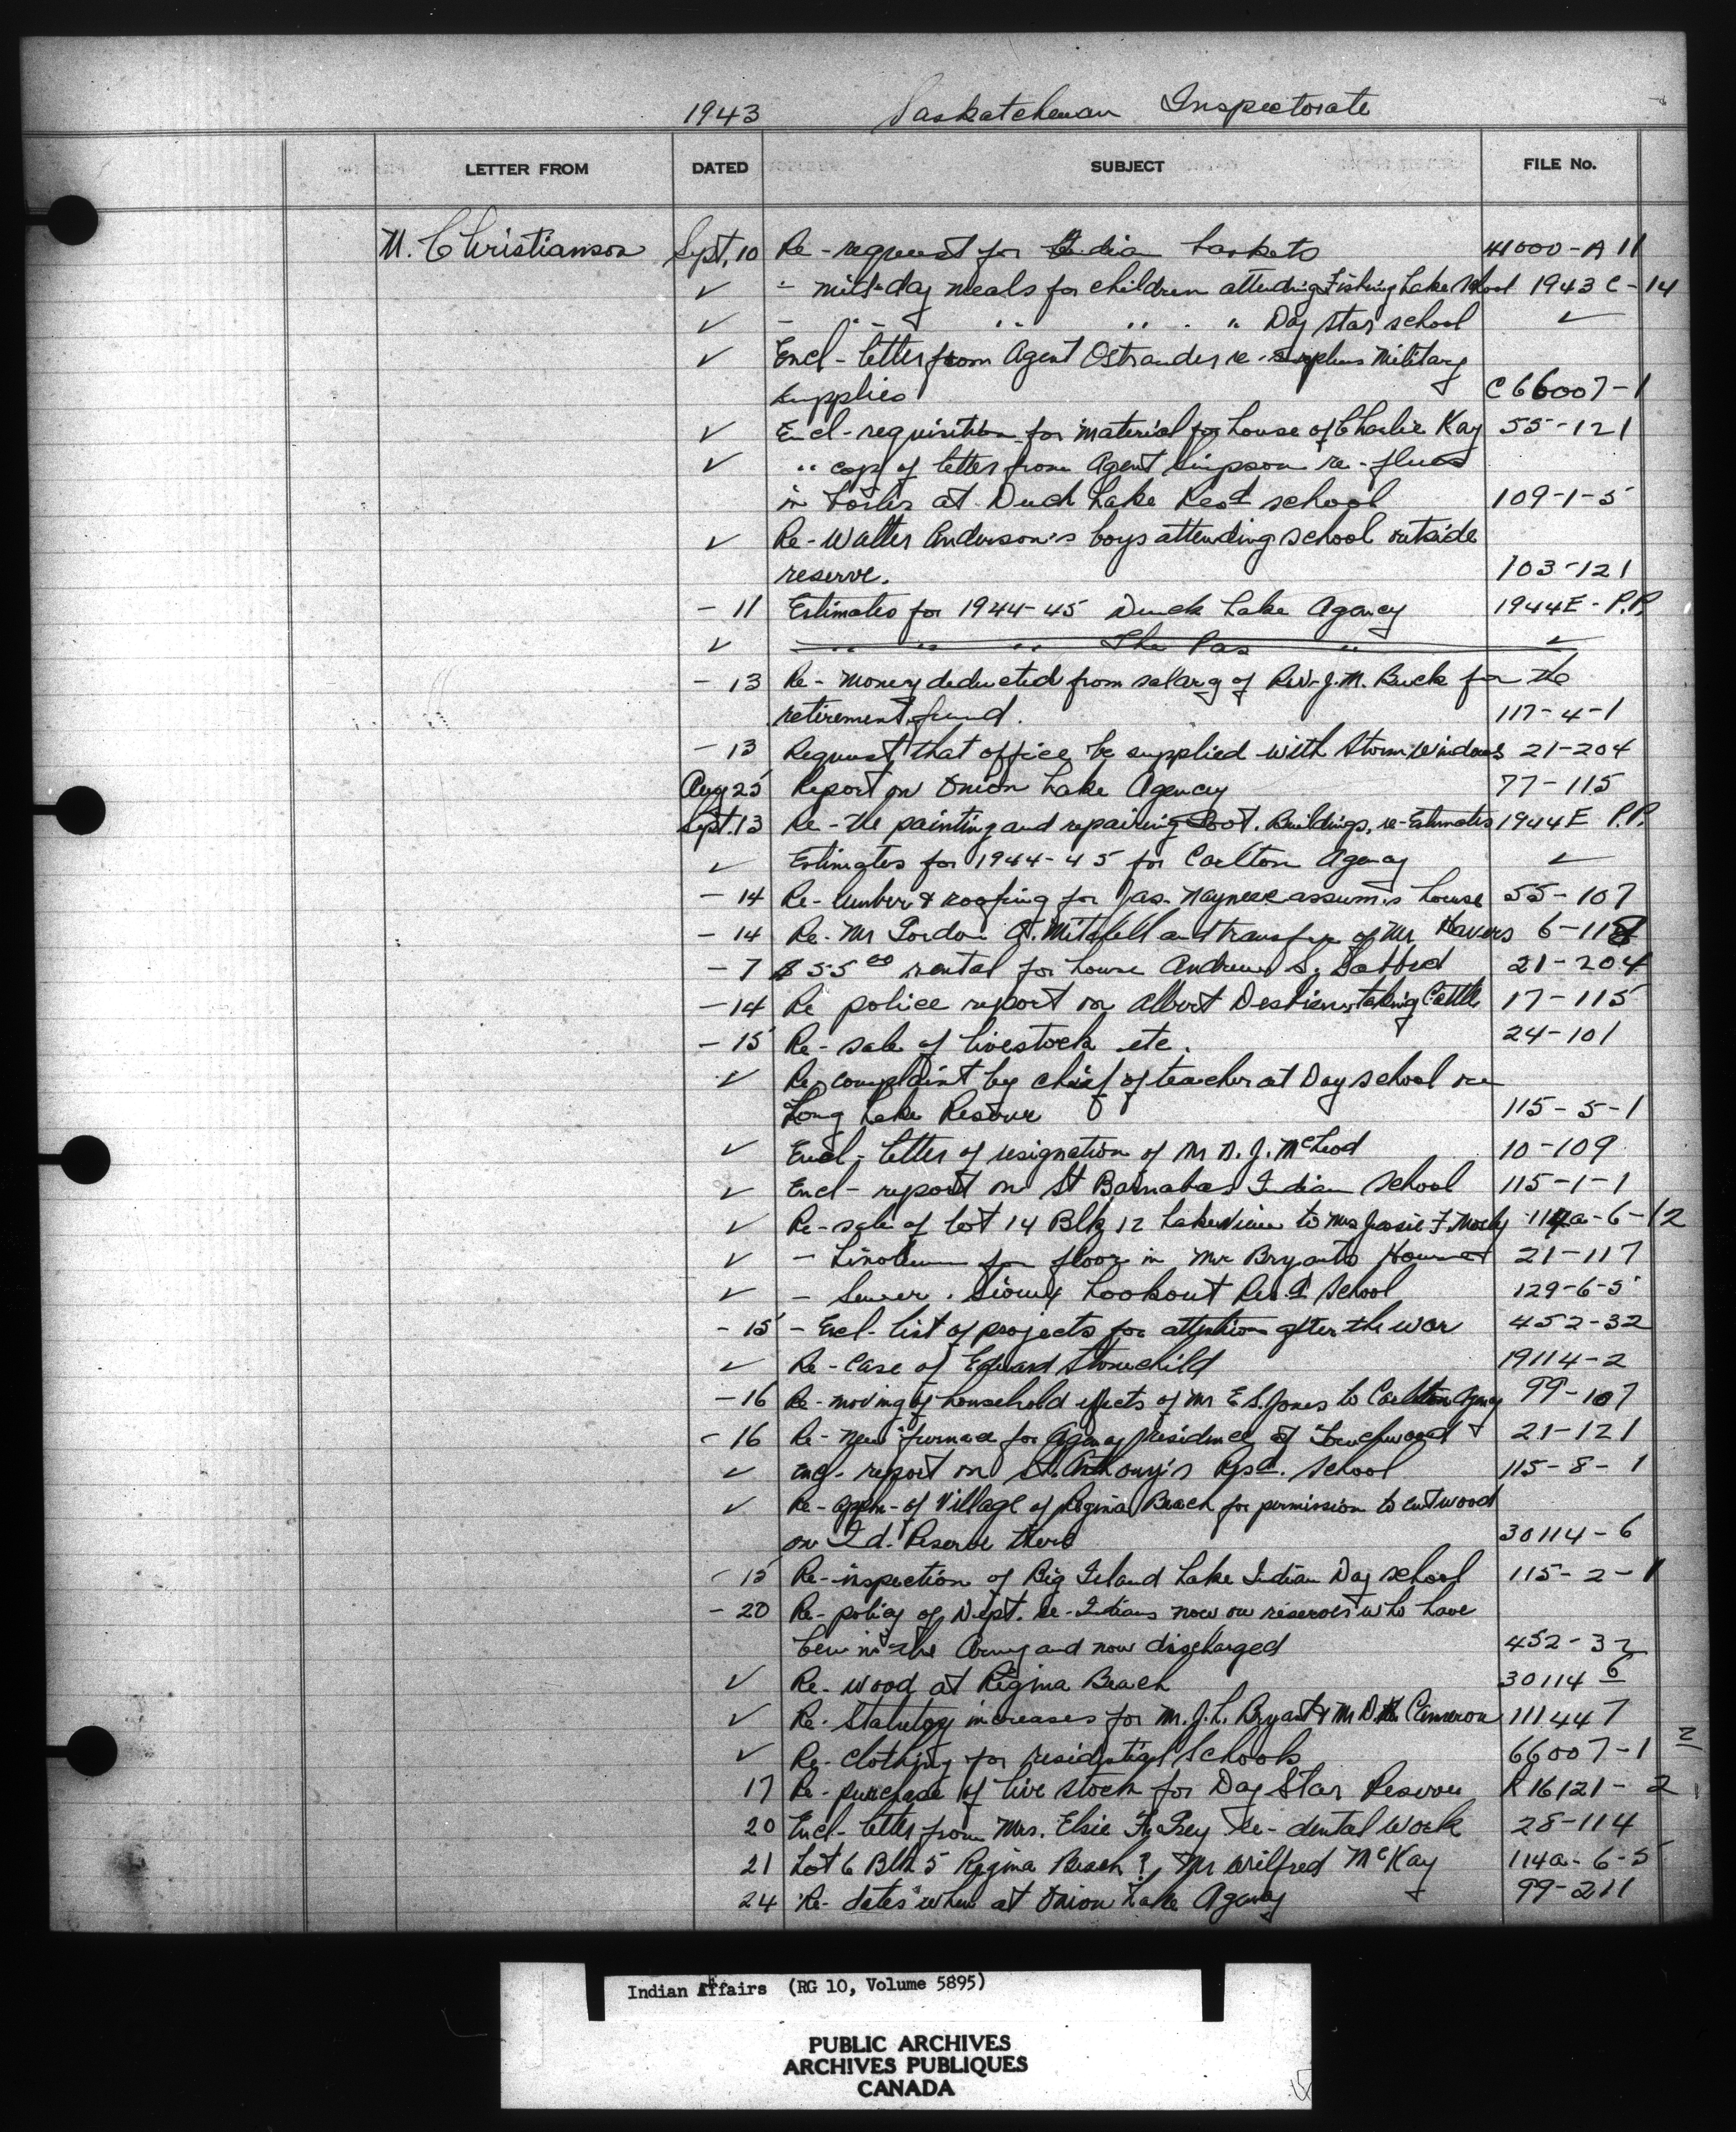 1943 Saskatchewan Inspectorate
LETTER FROM DATED SUBJECT FILE No.
M. Christianson Sept. 10 Re - request for Indian baskets 41000-A 11
✓ " mid-day meals for children attending Fishing Lake School 1943 C-14
✓ - " " " " " Day Star school ✓
✓ Encl - letter from Agent Ostrander re - surplus Military
supplies C 66007-1
✓ Encl - requisition for material for house of Charlie Kay 55-121
✓ " copy of letter from Agent Simpson re - flues
in boiler at Duck Lake Resd school 109-1-5
✓ Re - Walter Anderson's boys attending school outside
reserve. 103-121
- 11 Estimates for 1944-45 Duck Lake Agency 1944E - P.P.
✓ " " " The Pas " ✓
- 13 Re - Money deducted from salary of Rev. J. M. Buck for the
retirement fund. 117-4-1
- 13 Request that office be supplied with Storm Windows 21-204
Aug 25 Report on Onion Lake Agency 77-115
Sept. 13 Re - the painting and repairing Govt. Buildings, re - Estimates 1944E P.P.
✓ Estimates for 1944-45 for Carlton Agency ✓
- 14 Re - lumber & roofing for Jas. house 55-107
- 14 Re - Mr Gordon A. Mitchell and transfer of Mr Havers 6-118
- 7 $55 00 rental for house Andrew S. 21-204
- 14 Re police report on Albert taking Cattle 17-115
- 15 Re - sale of livestock etc. 24-101
✓ Re complaint by chief of teacher at Day school on
Long Lake Reserve 115-5-1
✓ Encl - letter of resignation of Mr D. J. McLeod 10-109
✓ Encl - report on St Barnabas Indian School 115-1-1
✓ Re - sale of Lot 14 Blk 12 Lakeview to Mrs Jessie F. 114a-6-12
✓ - Linoleum for floor in Mr Bryants House 21-117
✓ - Sewer. Sioux Lookout Res.d School 129-6-5
- 15 - Encl - list of projects for attention after the war 452-32
✓ Re - Case of Edward Stonechild 19114-2
- 16 Re - moving of household effects of Mr E. S. Jones to Carlton Agency 99-107
- 16 Re - new furnace for Agency residence at Touchwood 21-121
✓ encl - report on St. Anthony's Resd. School 115-8-1
✓ Re - appln - of Village of Regina Beach for permission to cut wood
on Id. Reserve there 30114-6
- 15 Re - inspection of Big Island Lake Indian Day school 115-2-1
- 20 Re - policy of Dept. re - Indians now on reserves who have
been in the Army and now discharged 452-32
✓ Re - wood at Regina Beach 30114-6
✓ Re - Statutory increases for Mr. J. L. Bryant & Mr D. Cameron 111447
✓ Re - clothing for residential Schools 66007-1 2
17 Re - purchase of live stock for Day Star Reserve R 16121-2
20 Encl - letter from Mrs. Elsie re - dental work 28-114
21 Lot 6 Blk 5 Regina Beach ?, Mr Wilfred McKay 114a-6-5
24 Re - dates when at Onion Lake Agency 99-211
Indian Affairs (RG 10, Volume 5895)
PUBLIC ARCHIVES
ARCHIVES PUBLIQUES
CANADA